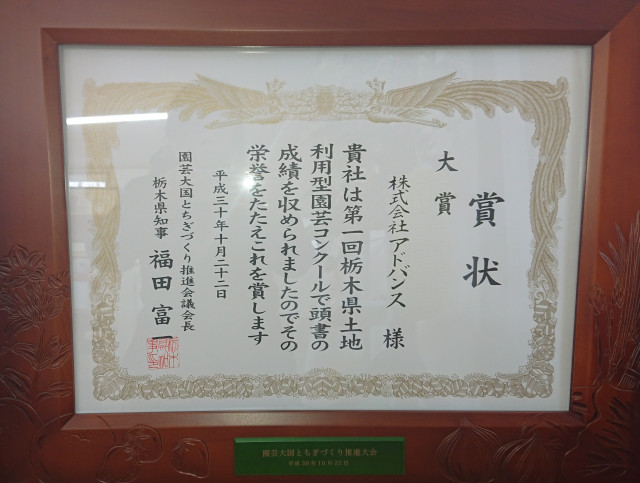 賞状
大賞
株式会社アドバンス 様
貴社は第一回栃木県土地
利用型園芸コンクールで頭書の
成績を収められましたのでその
栄誉をたたえこれを賞します
平成三十年十月二十二日
園芸大国とちぎづくり推進会議会長
栃木県知事 福田富一
園芸大国とちぎづくり推進大会
平成30年10月22日